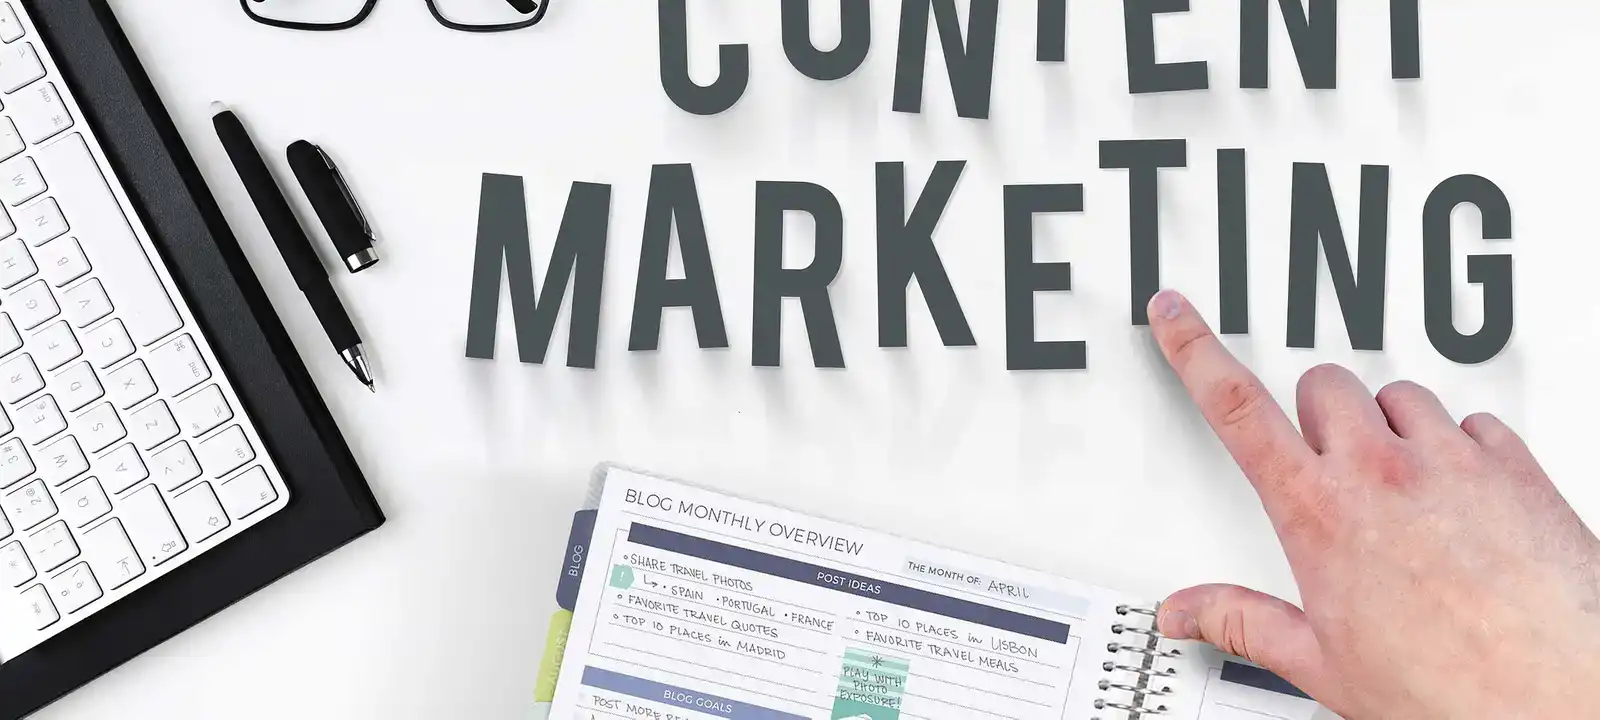 CONTENT
MARKETING
BLOG MONTHLY OVERVIEW
THE MONTH OF: APRIL
POST IDEAS
BLOG
SHARE TRAVEL PHOTOS
↳ • SPAIN • PORTUGAL • FRANCE
FAVORITE TRAVEL QUOTES
TOP 10 PLACES in MADRID
TOP 10 PLACES in LISBON
FAVORITE TRAVEL MEALS
PLAY WITH
PHOTO
EXPOSURE!
AUGUST
BLOG GOALS
POST MORE